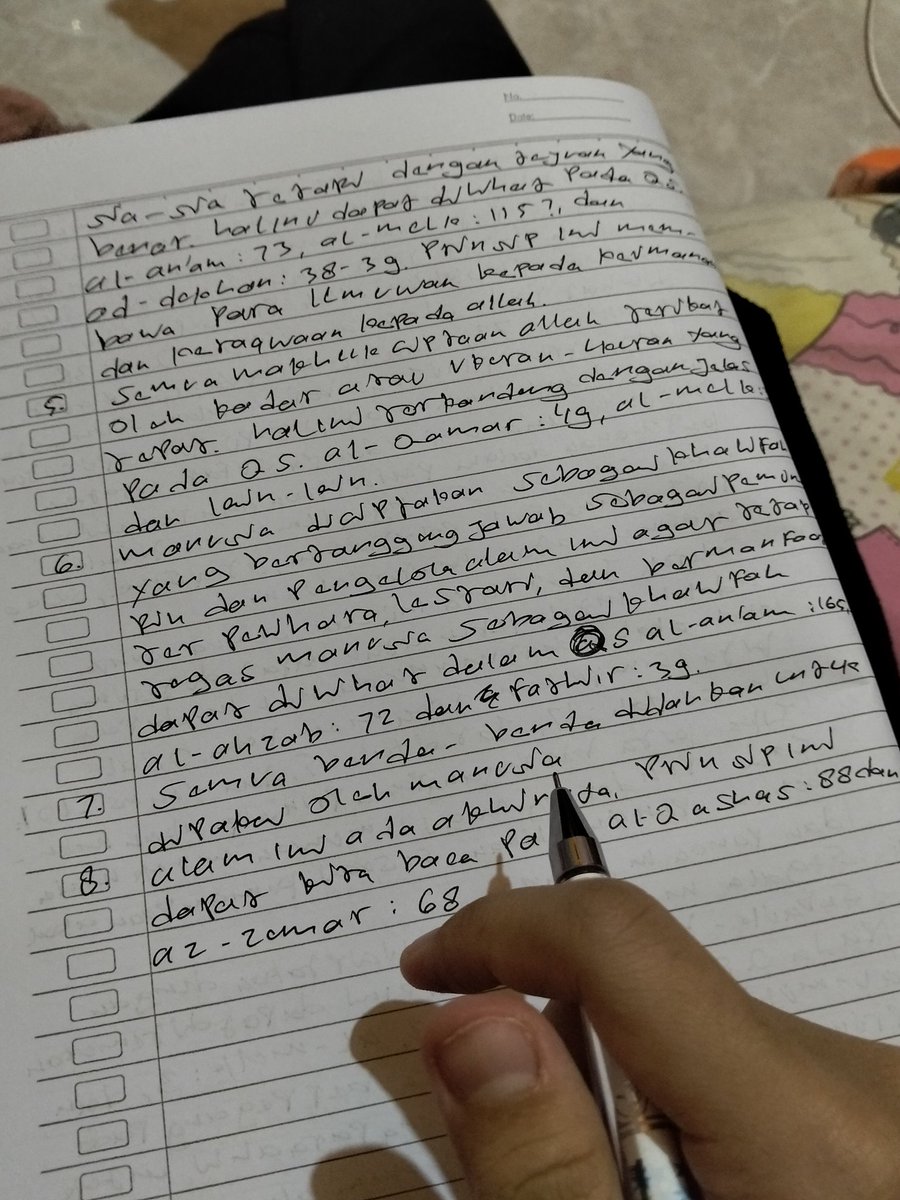 No.
Date:
sia-sia tetapi dengan tujuan yang
benar. hal ini dapat dilihat pada Qs.
al-an'am: 73, al-mulk: 115?, dan
ad-dukhan: 38-39. Prinsip ini mem-
bawa para ilmuwan kepada keimanan
dan ketaqwaan kepada allah.
5. Semua makhluk ciptaan allah terikat
oleh kadar atau ukuran-ukuran yang
tepat. hal ini terkandung dengan jelas
pada Q.S. al-Qamar: 49, al-mulk:
dan lain-lain.
6. manusia diciptakan sebagai khalifah
yang bertanggung jawab sebagai pemim
pin dan pengelola alam ini agar tetap
ter pelihara, lestari, dan bermanfaa
tugas manusia sebagai khalifah
dapat dilihat dalam QS al-an'am: 165
al-ahzab: 72 dan fathir: 39.
7. Semua benda-benda dijadikan untuk
dipakai oleh manusia
8. alam ini ada akhirnya. Prinsip ini
dapat kita baca pa al-Qashas: 88 dan
az-zumar: 68